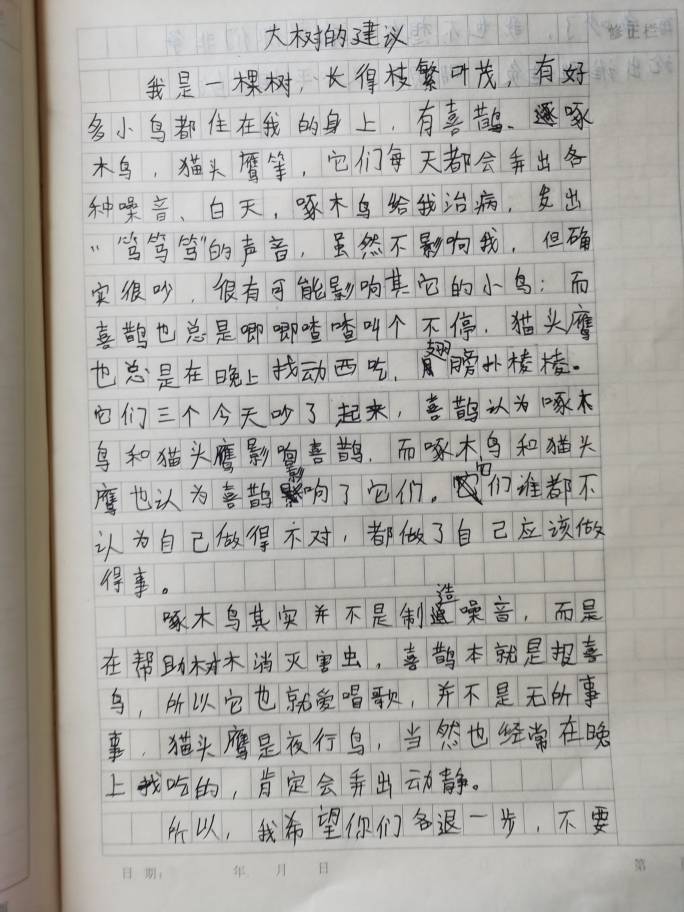 大树的建议
我是一棵树，长得枝繁叶茂，有好
多小鸟都住在我的身上，有喜鹊、啄
木鸟，猫头鹰等，它们每天都会弄出各
种噪音、白天，啄木鸟给我治病，发出
“笃笃笃”的声音，虽然不影响我，但确
实很吵，很有可能影响其它的小鸟；而
喜鹊也总是唧唧喳喳叫个不停，猫头鹰
也总是在晚上找动西吃，翅膀扑棱棱。
它们三个今天吵了起来，喜鹊认为啄木
鸟和猫头鹰影响喜鹊，而啄木鸟和猫头
鹰也认为喜鹊影响了它们。它们谁都不
认为自己做得不对，都做了自己应该做
得事。
啄木鸟其实并不是制造噪音，而是
在帮助树木消灭害虫，喜鹊本就是报喜
鸟，所以它也就爱唱歌，并不是无所事
事，猫头鹰是夜行鸟，当然也经常在晚
上找吃的，肯定会弄出动静。
所以，我希望你们各退一步，不要
日期： 年 月 日 第
修正栏